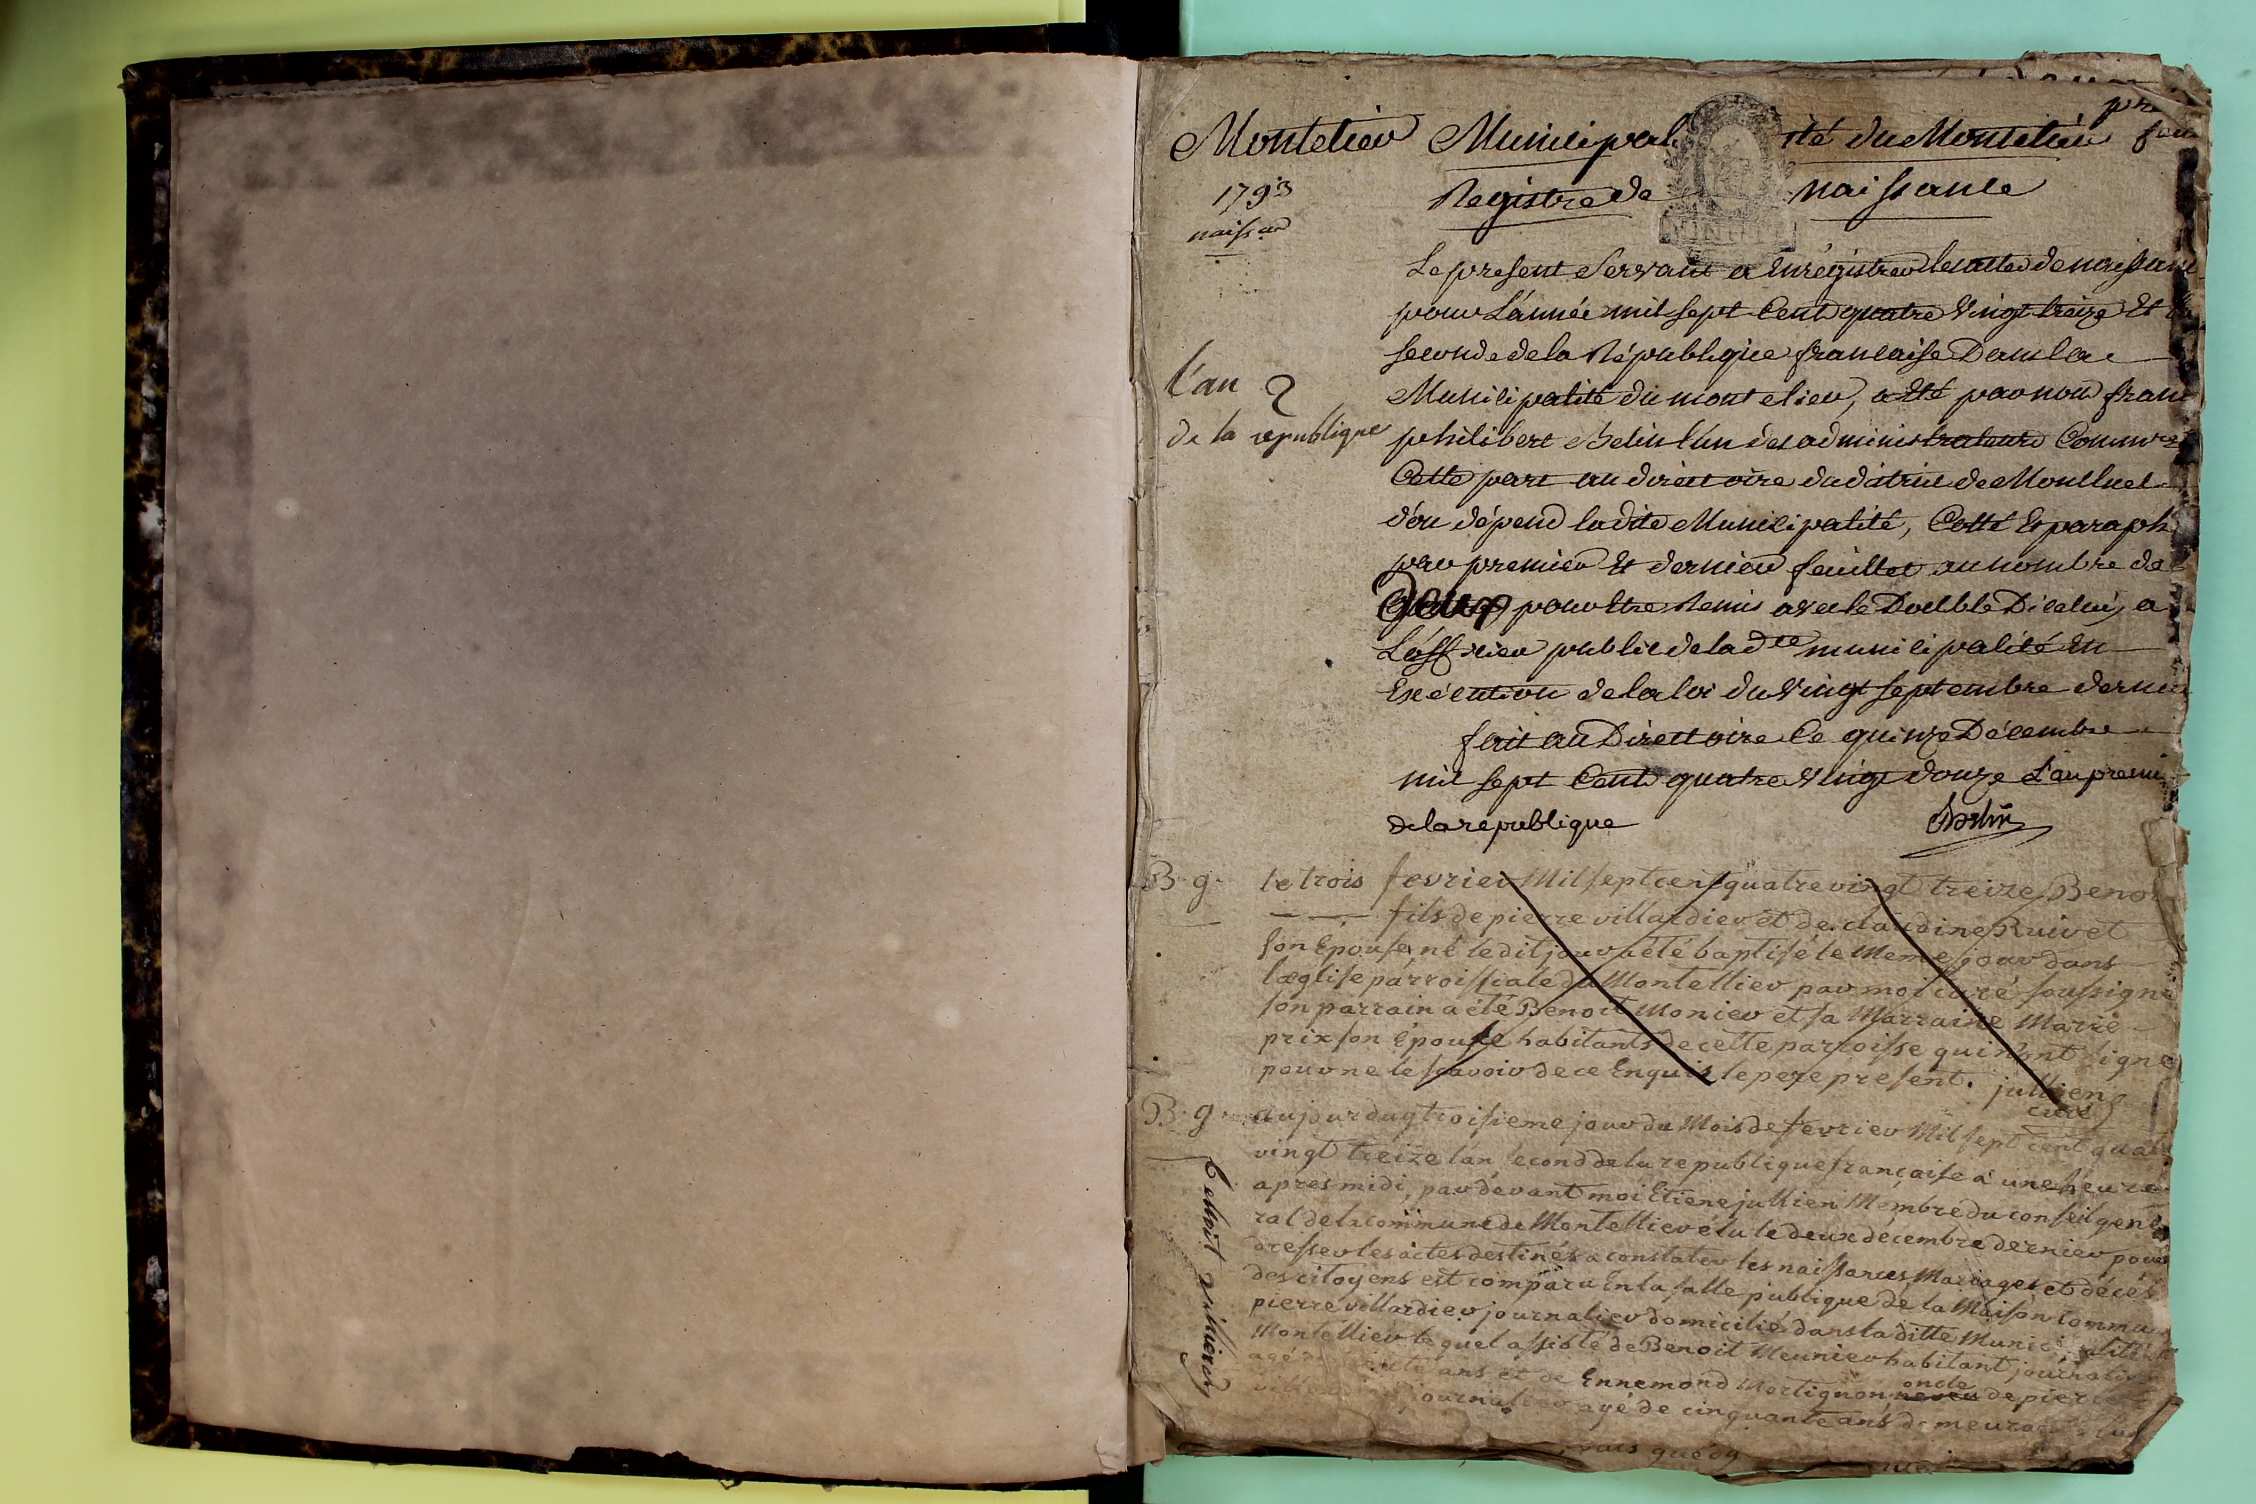 Montelier Municipalité du Montelier
1793 Registre de naissance
naissce
Le present Servant a Enrégistrer les actes de naissance
pour L'année mil sept Cent quatre Vingt treize Et
seconde de la République francaise Dans la
L'an 2
Municipalité du montelier, a Eté par nous
de la republique
philibert Belin l'un des administrateurs
au directoire du district de Montluel
d'ou dépend ladite Municipalité, Cotté Et paraph
par premier Et dernier feuillet au nombre de
Deux pour Etre Remis avec le Double D'icelui, a
L'officier public de la dte municipalité En
Exécution de la loi du Vingt septembre dernier
fait au Directoire Ce quinze Décembre
mil sept Cent quatre Vingt douze L'an premi
de la republique Belin
B. g. le trois fevrier Mil sept cens quatre vingt treize Benoi
fils de pierre villardier et de claudine Ruivet
son Epouse né le dit jour a été baptisé le Meme jour dans
l'æglise parroissiale du Montellier par moi curé soussigné
son parrain a été Benoit Monier et sa Marraine Marie
prix son Epouse habitants de cette parroisse qui n'ont signé
pour ne le sçavoir de ce Enquis le pere present. jullien
curé
B. g. aujourduy troisieme jour du Mois de fevrier Mil sept cent quat
vingt treize l'an second de la republique française à une heure
apres midi, par devant moi Etiene jullien Membre du conseil gene
ral de la commune de Montellier élu le deux décembre dernier pour
dresser les actes destinés a constater les naissances Mariages et décès
des citoyens est comparu En la salle publique de la Maison Commu
pierre villardier journalier domicilié dans la ditte Munici alité
Montellier le quel assisté de Benoit Meunier habitant journalier
agé ans et de Ennemond Mortignon oncle neveu de pierre
journalier agé de cinquante ans demeura
Benoit